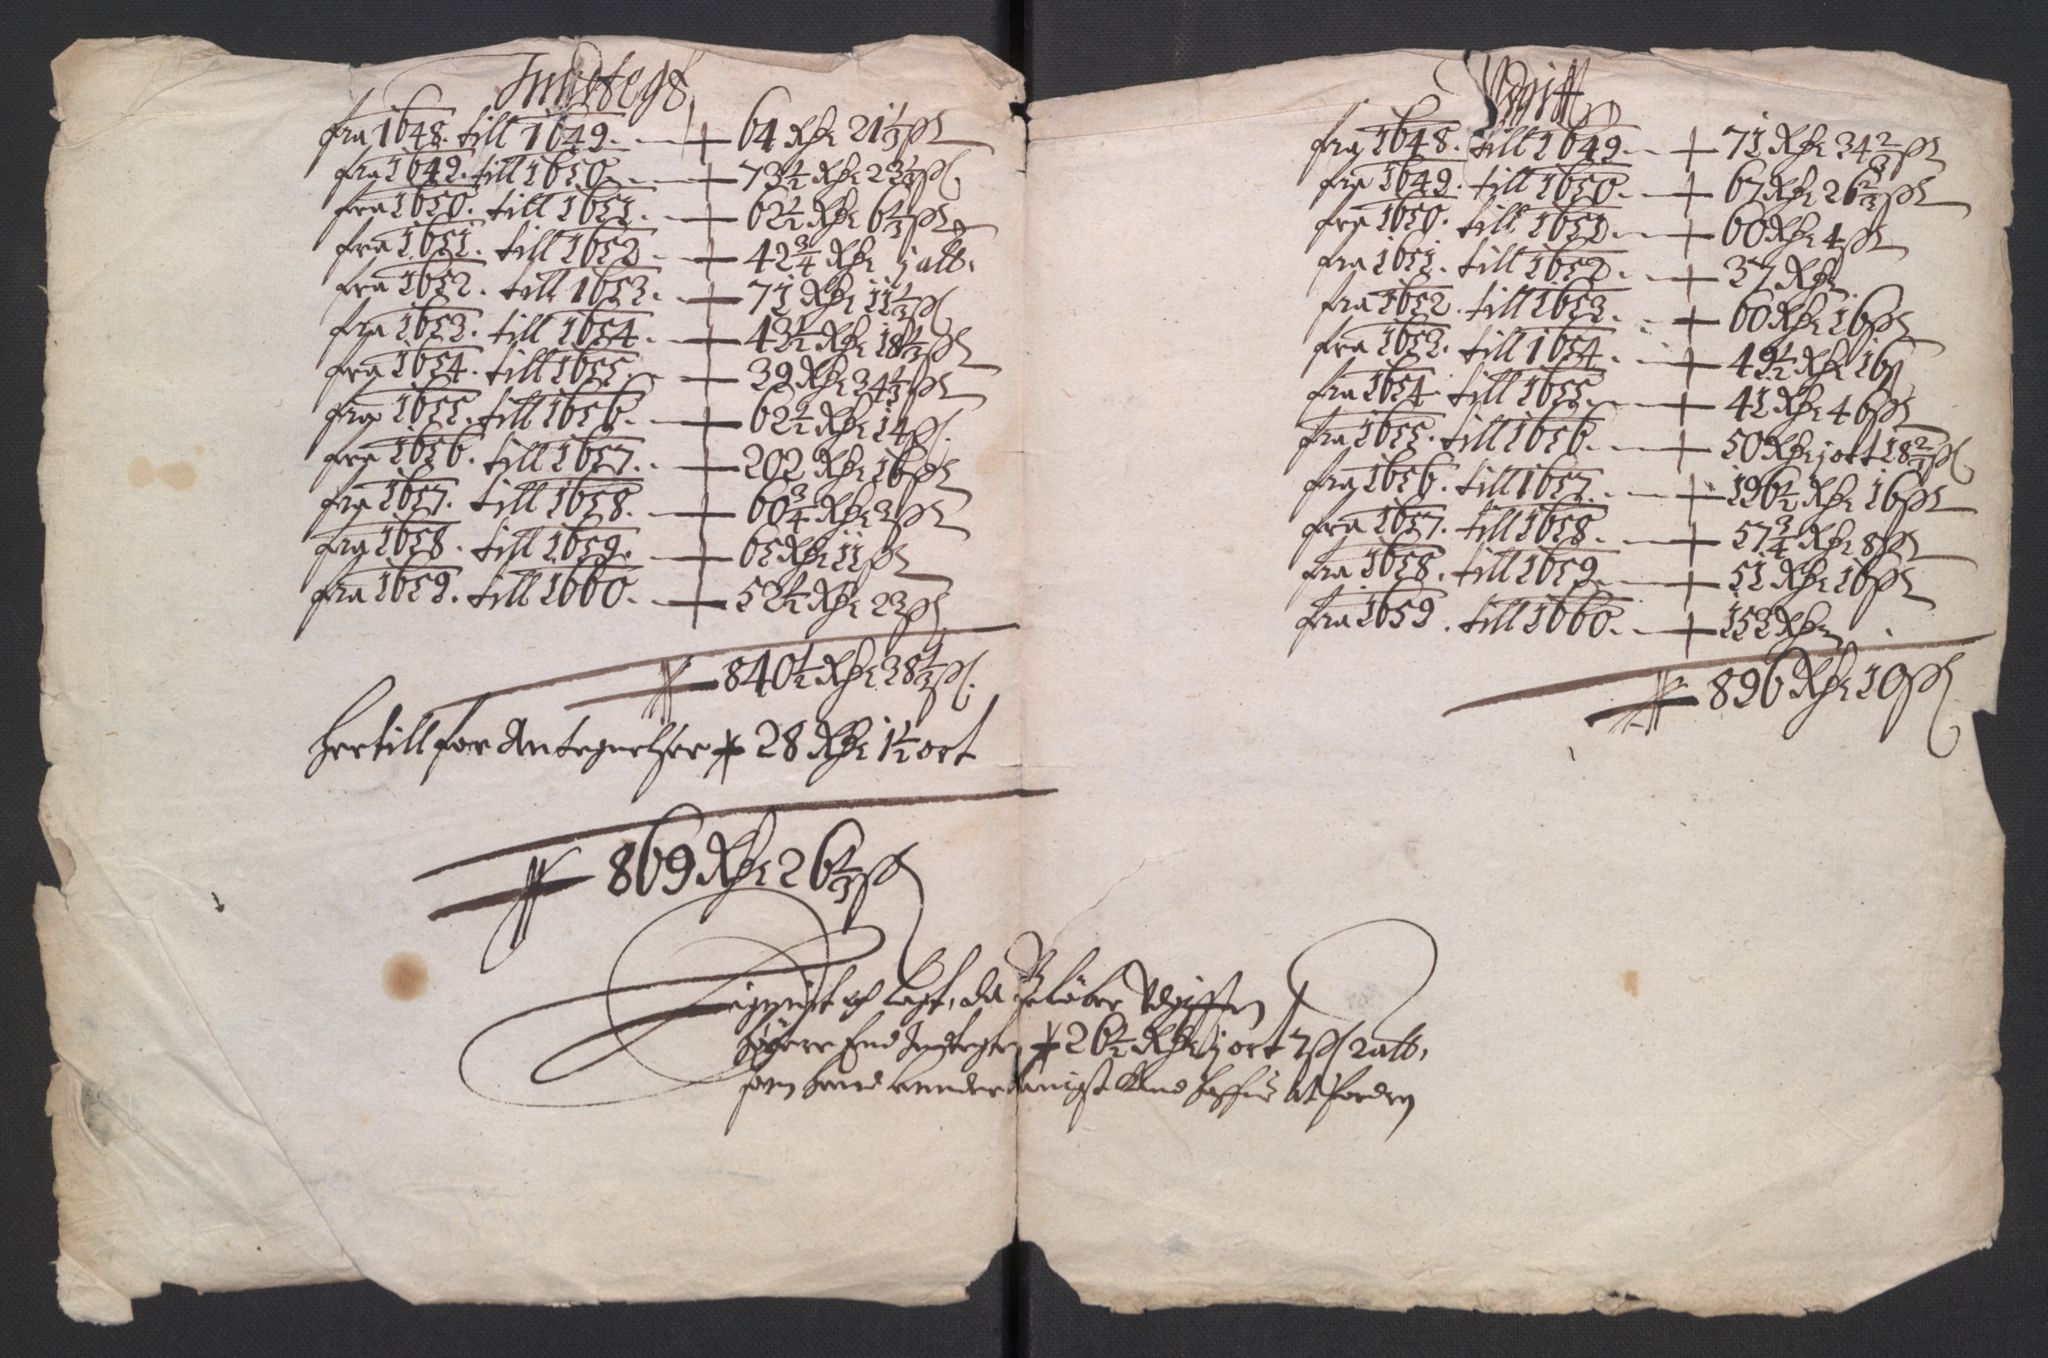 Indtegt
fra 1648. till 1649. — 64 Rdr 21 1/3 ß
fra 1649. till 1650. — 73 1/2 Rdr 23 1/3 ß.
fra 1650. till 1651. — 62 1/2 Rdr 6 1/3 ß
fra 1651. till 1652. — 42 3/4 Rdr j alb.
fra 1652. till 1653. — 71 Rdr 11 1/3 ß
fra 1653. till 1654. — 43 1/2 Rdr 18 1/3 ß
fra 1654. till 1655. — 39 Rdr 34 1/3 ß
fra 1655. till 1656. — 62 1/2 Rdr 14 ß.
fra 1656. till 1657. — 202 Rdr 16 ß
fra 1657. till 1658. — 60 3/4 Rdr 3 ß
fra 1658. till 1659. — 65 Rdr 11 ß
fra 1659. till 1660. — 52 1/2 Rdr 23 ß
840 1/2 Rdr 38 1/3 ß.
hertill for Antegnelser 28 Rdr 1 1/2 ort
869 Rdr 26 1/3 ß
Udgift
fra 1648. till 1649. — 71 Rdr 34 2/3 ß
fra 1649. till 1650. — 67 Rdr 26 2/3 ß
fra 1650. till 1651. — 60 Rdr 4 ß
fra 1651. till 1652. — 37 Rdr
fra 1652. till 1653. — 60 Rdr 16 ß
fra 1653. till 1654. — 49 1/2 Rdr 16 ß
fra 1654. till 1655. — 41 Rdr 46 ß
fra 1655. till 1656. — 50 Rdr j ort 18 2/3 ß.
fra 1656. till 1657. — 196 1/2 Rdr 16 ß
fra 1657. till 1658. — 57 3/4 Rdr 8 ß
fra 1658. till 1659. — 51 Rdr 16 ß
fra 1659. till 1660. — 153 Rdr
896 Rdr 10 ß
Lignet och lagt, da beløber Udgifften
høyere End Indtegten 26 1/2 Rdr j ort 7 ß 2 alb.
som hand underdanigst hafue at fordre